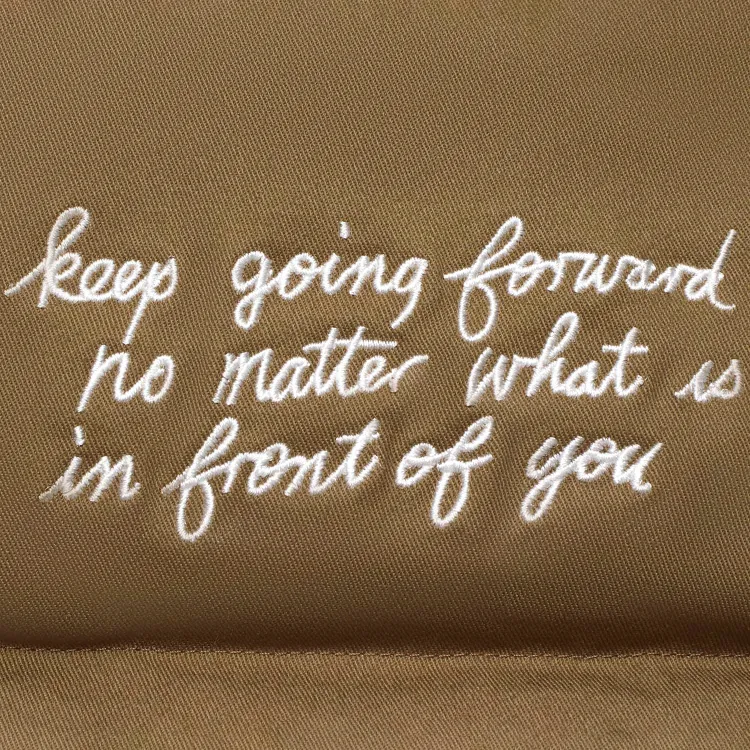 keep going forward
no matter what is
in front of you